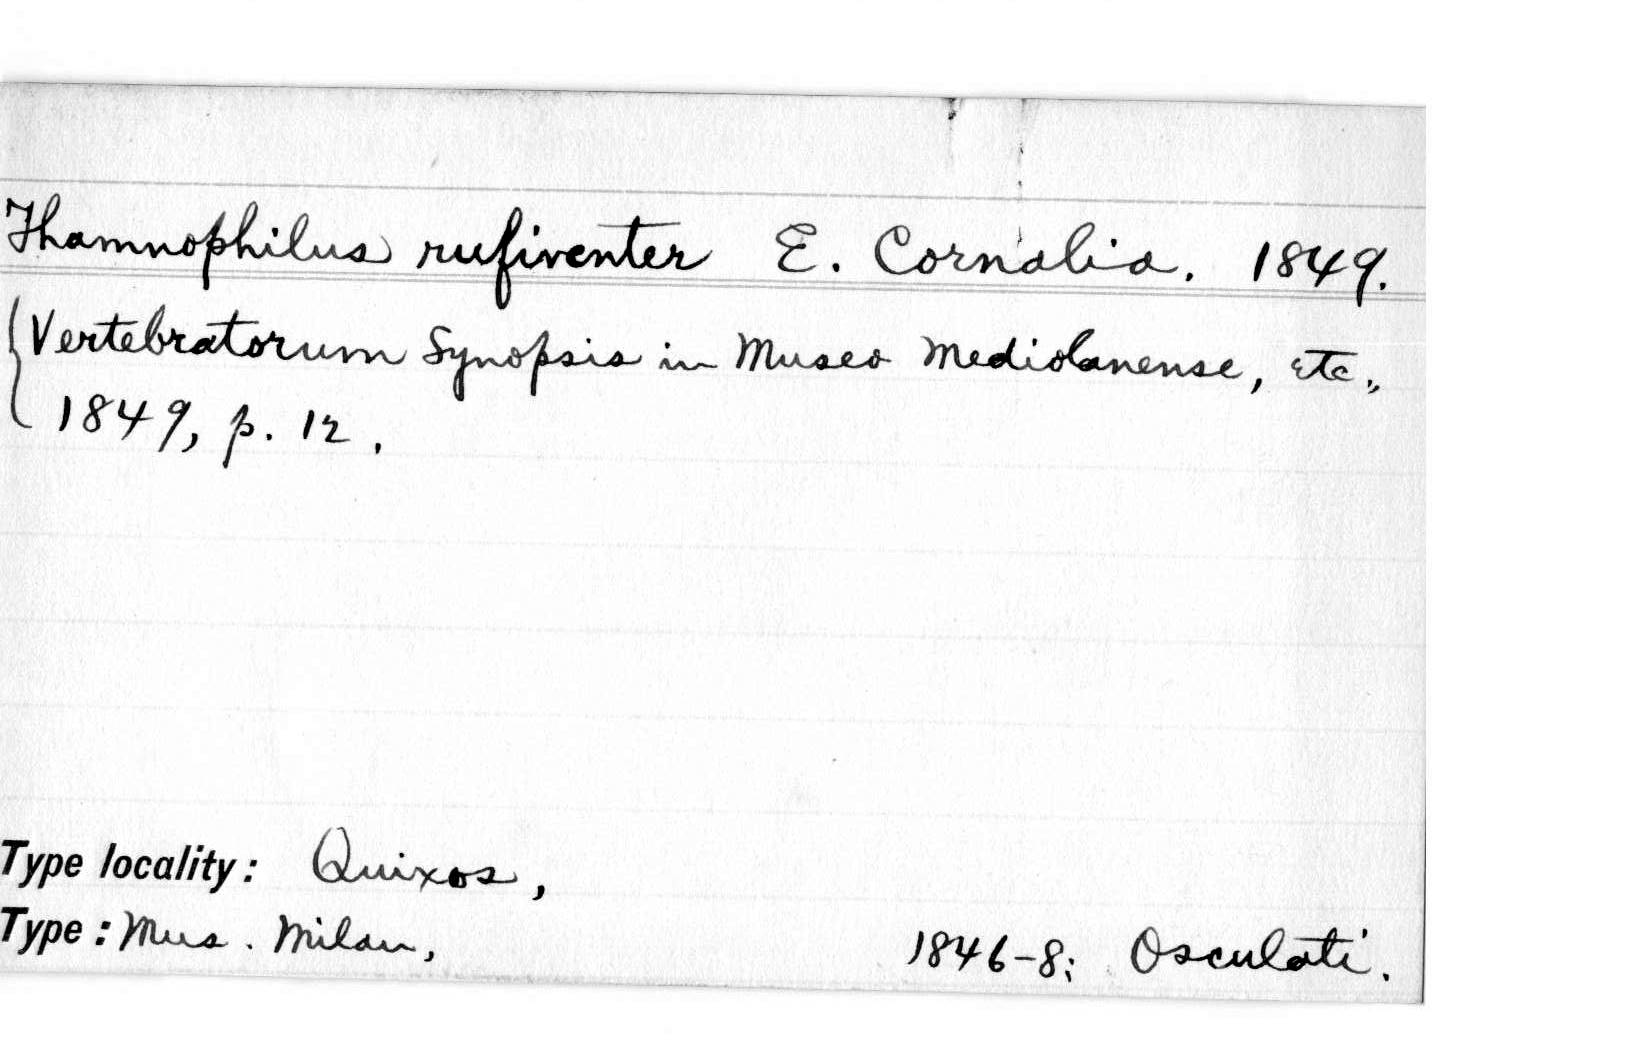 Thamnophilus rufiventer E. Cornalia. 1849.
Vertebratorum Synopsis in Museo Mediolanense, etc.,
1849, p. 12.
Type locality: Quixos,
Type: Mus. Milan, 1846-8; Osculati.